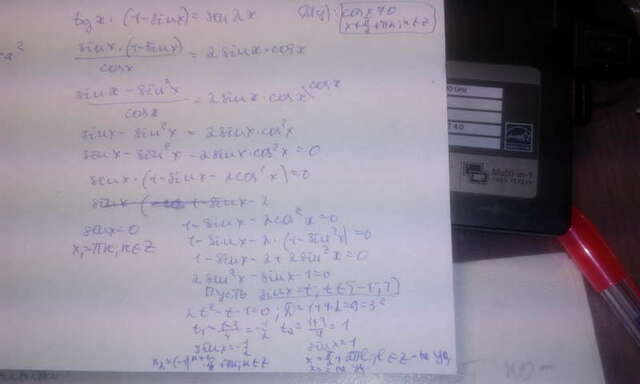 tg x · (1-sin x) = sin 2x
ОДЗ: cos x ≠ 0
x ≠ π/2 + πn, n ∈ Z
sin x · (1-sin x) / cos x = 2 sin x · cos x
sin x - sin²x / cos x = 2 sin x · cos x \ cos x
sin x - sin²x = 2 sin x · cos²x
sin x - sin²x - 2 sin x · cos²x = 0
sin x · (1 - sin x - 2cos²x) = 0
sin x = 0
x₁ = πn, n ∈ Z
1 - sin x - 2cos²x = 0
1 - sin x - 2 · (1 - sin²x) = 0
1 - sin x - 2 + 2 sin²x = 0
2 sin²x - sin x - 1 = 0
Пусть sin x = t, t ∈ [-1; 1]
2t² - t - 1 = 0; D = 1+4·2 = 9 = 3²
t₁ = 1-3/4 = -1/2 t₂ = 1+3/4 = 1
sin x = -1/2
sin x = 1
x₂ = (-1)ⁿ⁺¹ · π/6 + πn, n ∈ Z
x = π/2 + 2πn, n ∈ Z - не уд.
Multi-in-1